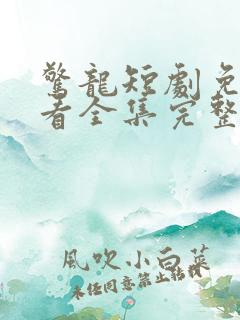 驚龍短劇免
看全集完整
風吹小白菜
未經同意禁止轉載